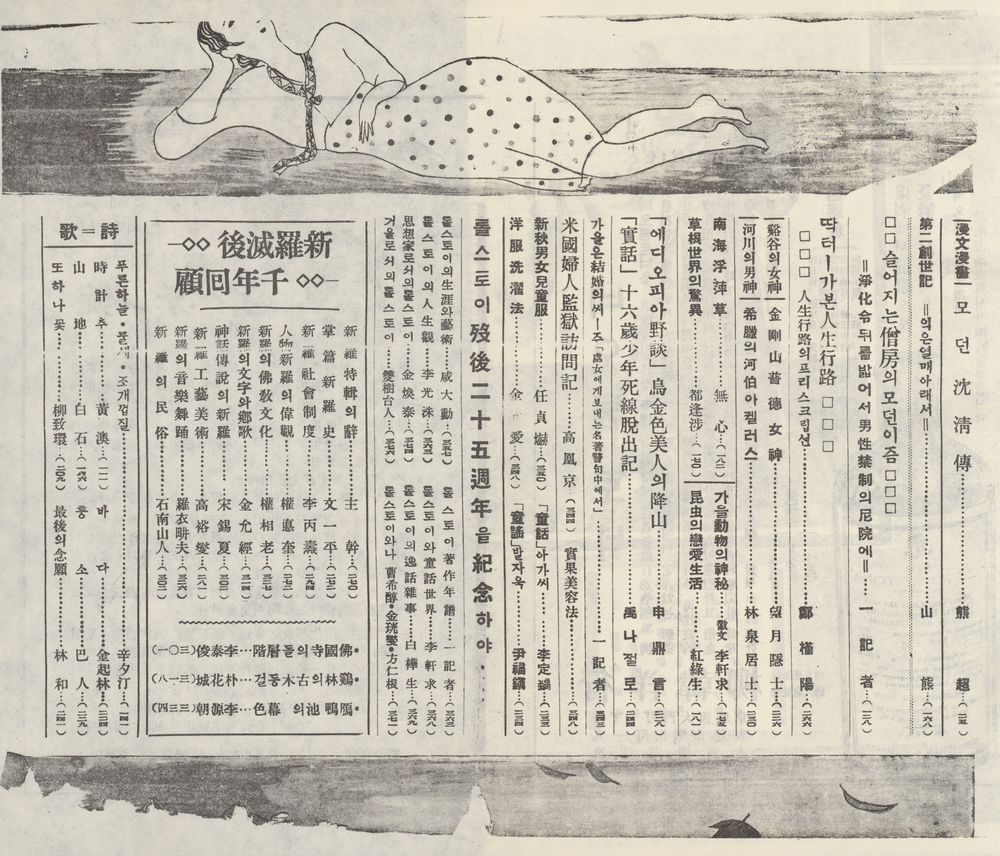 漫文漫畵 모던沈淸傳……熊 超…(一五)
第二創世記 ＝익은열매아래서＝……山 熊…(一六八)
□□슬어지는僧房의모던이즘□□□
＝淨化令뒤를밟어서男性禁制의尼院에＝…一記者…(一二八)
딱터ー가본人生行路□□□
□□□人生行路의프리스크립션……鄭槿陽…(一六六)
谿谷의女神 金剛山普德女神……望月隱士…(一三六)
河川의男神 希臘의河伯아켈러스……林泉居士…(一三〇)
南海浮萍草……無心…(一八二)
가을動物의神秘……散文 李軒求…(一七五)
草根世界의驚異……都逢涉…(一七〇)
昆虫의戀愛生活……紅綠生…(一八一)
「에디오피아野談」烏金色美人의降山……申鼎言…(三一八)
「實話」十六歲少年死線脫出記……禹나절로…(二四四)
가을은結婚의씨ー즌「處女에게보내는名著警句中에서」……一記者…(二四三)
米國婦人監獄訪問記……高凰京…(三四四)
實果美容法……(二四八)
新秋男女兒童服……任貞爀…(三五〇)
「童話」아가씨……李定鎬…(三三五)
洋服洗濯法……金 愛…(三四八)
「童謠」발자욱……尹福鎭…(三三四)
톨스토이歿後二十五週年을紀念하야・・
톨스토이의生涯와藝術……咸大勳…(三五七)
톨스토이著作年譜……一記者…(三六三)
톨스토이의人生觀……李光洙…(三五三)
톨스토이와童話世界……李軒求…(三六八)
思想家로서의톨스토이…金煥泰…(三七四)
톨스토이의逸話雜事……白樺生…(三六九)
거울로서의톨스토이……雙樹台人…(三七六)
톨스토이와나 曺希醇・金珖燮・方仁根…(三七一)
新羅滅後
千年回顧
新羅特輯의辭……主幹…(二七〇)
掌篇新羅史……文一平…(二七二)
新羅社會制度……李丙燾…(二九四)
人物新羅의偉觀……權悳奎…(二七三)
新羅의佛敎文化……權相老…(三七七)
新羅의文字와鄕歌……金允經…(三一四)
神話傳說의新羅……宋錫夏…(三〇三)
新羅工藝美術……高裕燮…(二八一)
新羅의音樂舞踊……羅衣畊夫…(三二六)
新羅의民俗……石南山人…(三〇三)
・佛國寺의돌層階…李泰俊(三〇一)
・鷄林의古木둥걸…朴花城(三一八)
・鴈鴨池의暮色…李源朝(三三四)
詩＝歌
푸른하늘・물새・조개껍질……辛夕汀…(一四一)
時計추……黃澳…(一一一)
바다……金起林…(三三四)
山地……白石…(一六六)
풍소……巴人…(一三九)
또하나꽃……柳致環…(二〇九)
最後의念願……林和…(二四一)